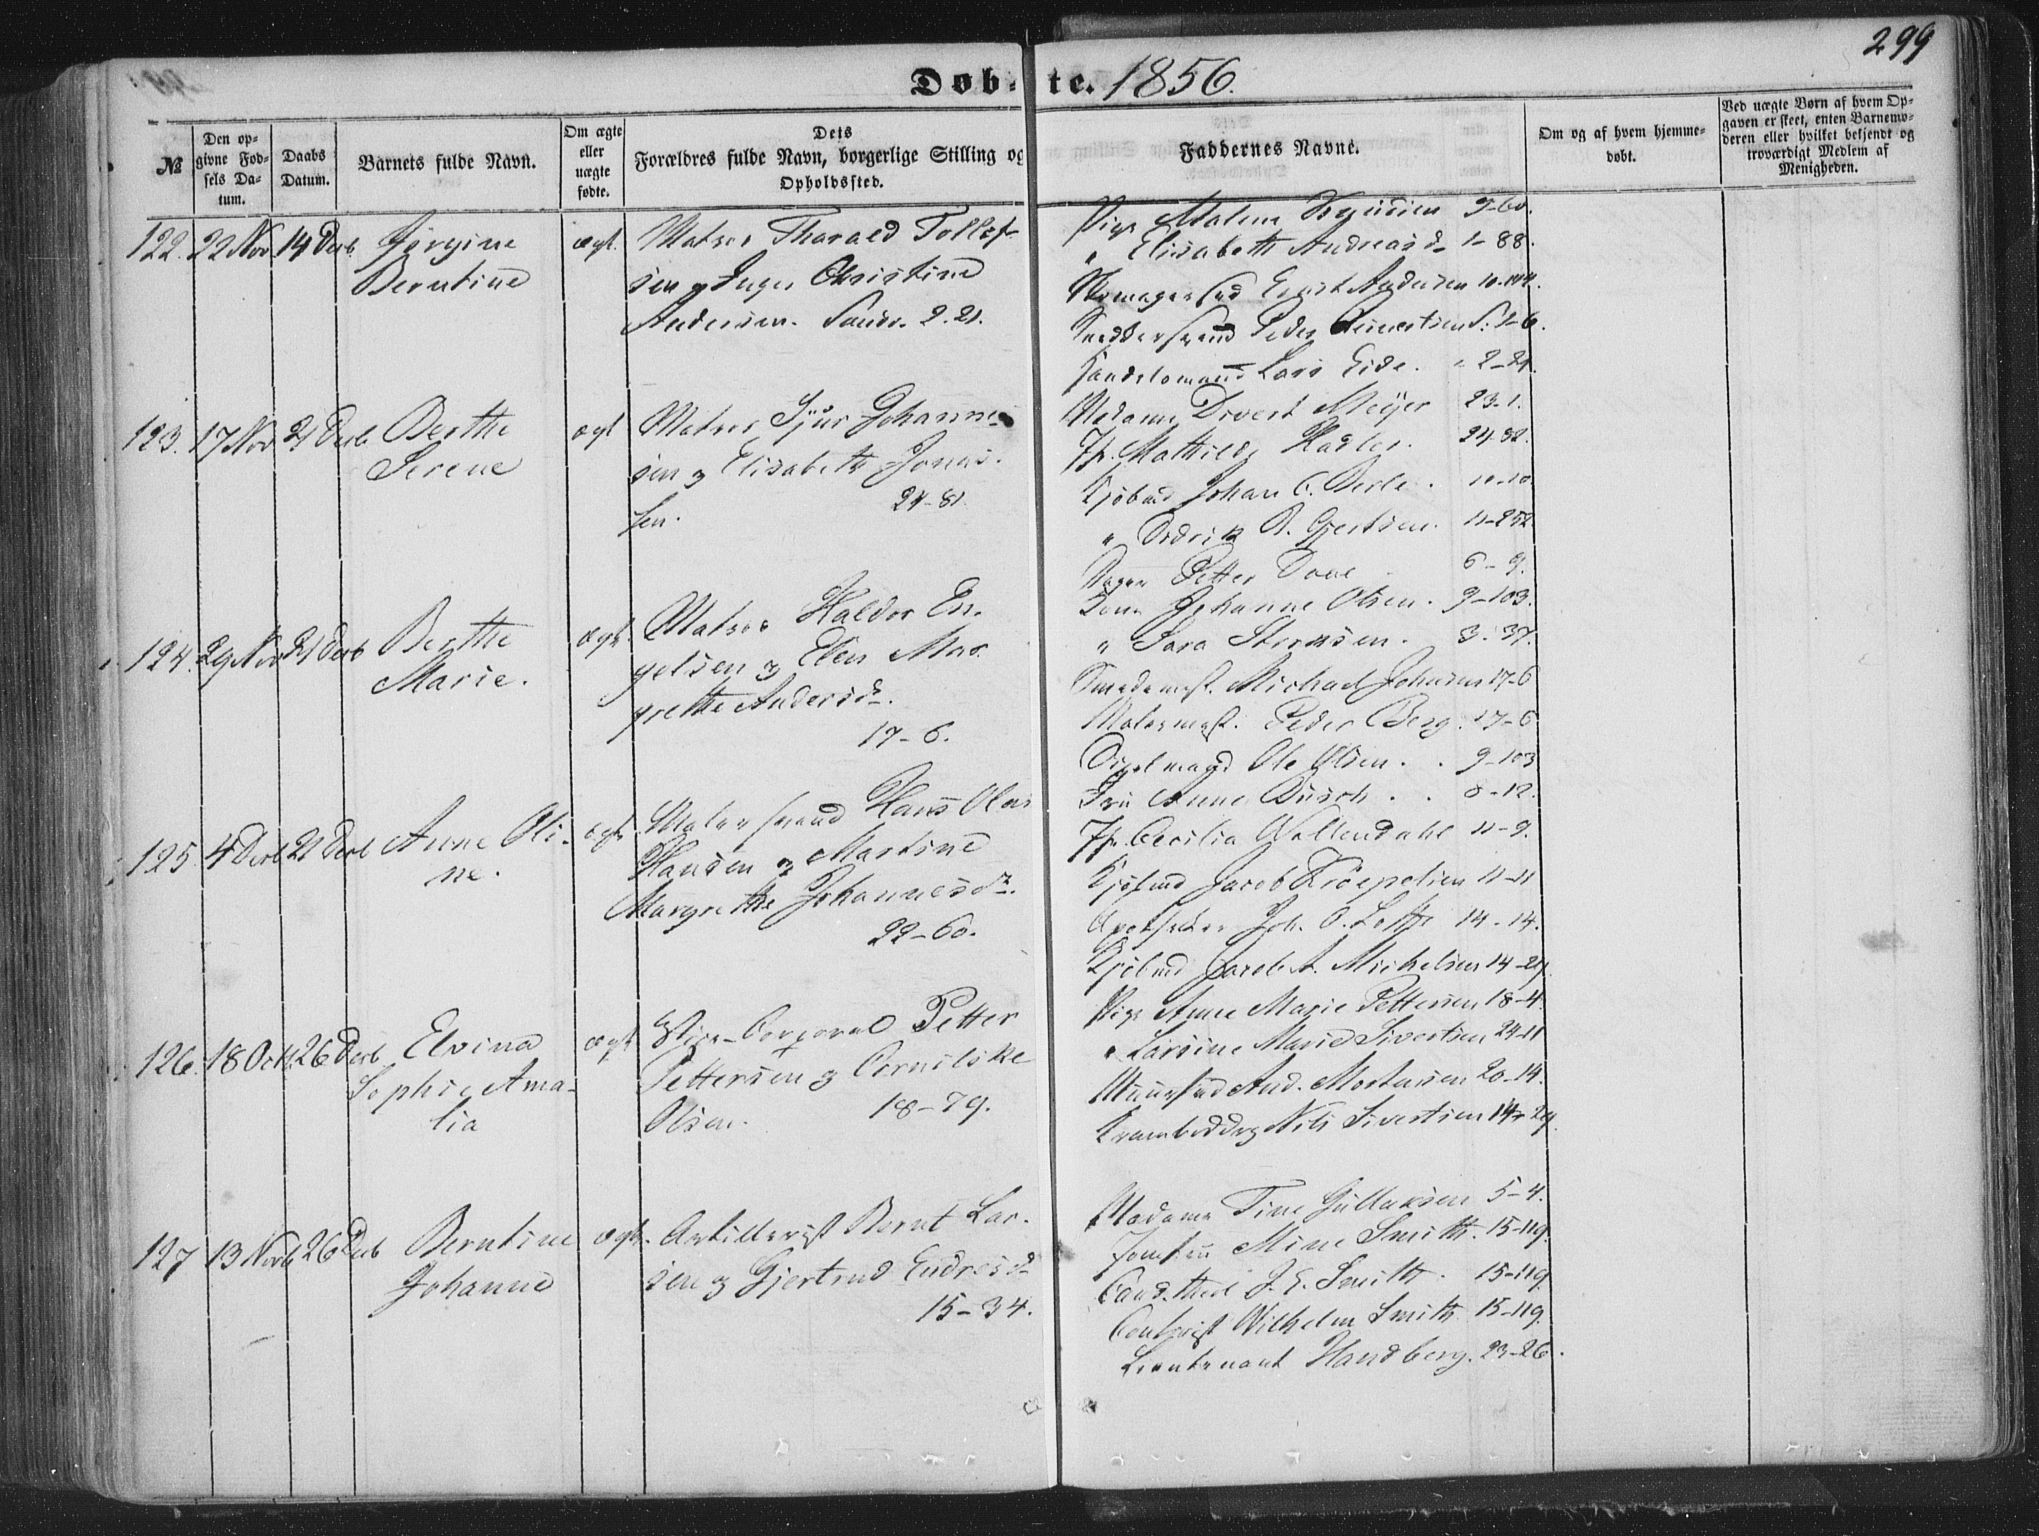 299
Døbte. 1856.
№
Den opgivne Fødsels Datum.
Daabs Datum.
Barnets fulde Navn.
Om ægte eller uægte fødte.
Dets Forældres fulde Navn, borgerlige Stilling og Opholdssted.
Faddernes Navne.
Om og af hvem hjemmedøbt.
Ved uægte Børn af hvem Opgaven er skeet, enten Barnemoderen eller hvilket bekjendt og troværdigt Medlem af Menigheden.
122. 22 Nov 14 Decb. Jørgine
Berntine
ægt.
Matros Tharald Tollef-
sen og Inger Christine
Andersen. 2.21.
Pige Malene 9-60.
" Elisabeth Andreasd. 1-88.
Andersen 10.144.
Peder 1-6.
Handelsmand Lars Eide. 2-21.
123. 17 Nov 21 Decb Berthe
Serene
ægt
Matros Sjur Johanne-
sen og Elisabeth Jonas-
sen. 24-81.
Madame Divert Meyer 23-1.
Jfr. Mathilde 24.82.
Kjøbmd Johan C. 10-10
" Didrik R. Gjertsen. 11-252
Petter 6-9.
124. 29 Nov 21 Decb Berthe
Marie.
ægt.
Matros Haldor En-
gelsen og Elen Mar-
grethe Andersd.
17-6.
Johanne Olsen. 9-103.
" Sara 3.37.
Smedemest. Michael Johnsen 17-6
Malermest. Peder Berg. 17-6
Ole Olsen. . 9-103
125. 4 Decb 21 Decb Anne Oli-
ne.
ægt
Malersvend Hans Olai
Hansen og Martine
Margrethe Johannesd.
22-60.
Fru Anne Busch . . 8-12.
Jfr. Cecilia Wollendahl 11-9.
Kjøbmd Jacob Krøepelien 11-11
Apotheker Joh. 14-14.
Kjøbmd Jacob A. Michelsen 14-29
126. 18 Octb 26 Decb Elvina
Sophie Ama-
lia
ægt
Corporal Petter
Pettersen og Cornilske
Olsen. 18-79.
Pige Anne Marie Pettersen 18-4.
" Larsine Marie Sivertsen 24-11
And. Mortensen 20-14.
Nils Sivertsen 14-29.
127 13 Novb 26 Decb Berntine
Johanne
ægt.
Artillerist Bernt Lar-
sen og Gjertrud Endresd.
15-34.
Madame Tine Gullaksen 5-4.
Jomfru Mine Smith. 15-119.
Cand. theol J. E. Smith. 15-119.
Contorist Wilhelm Smith 15-119.
Lieutenant Handberg. 23-26.